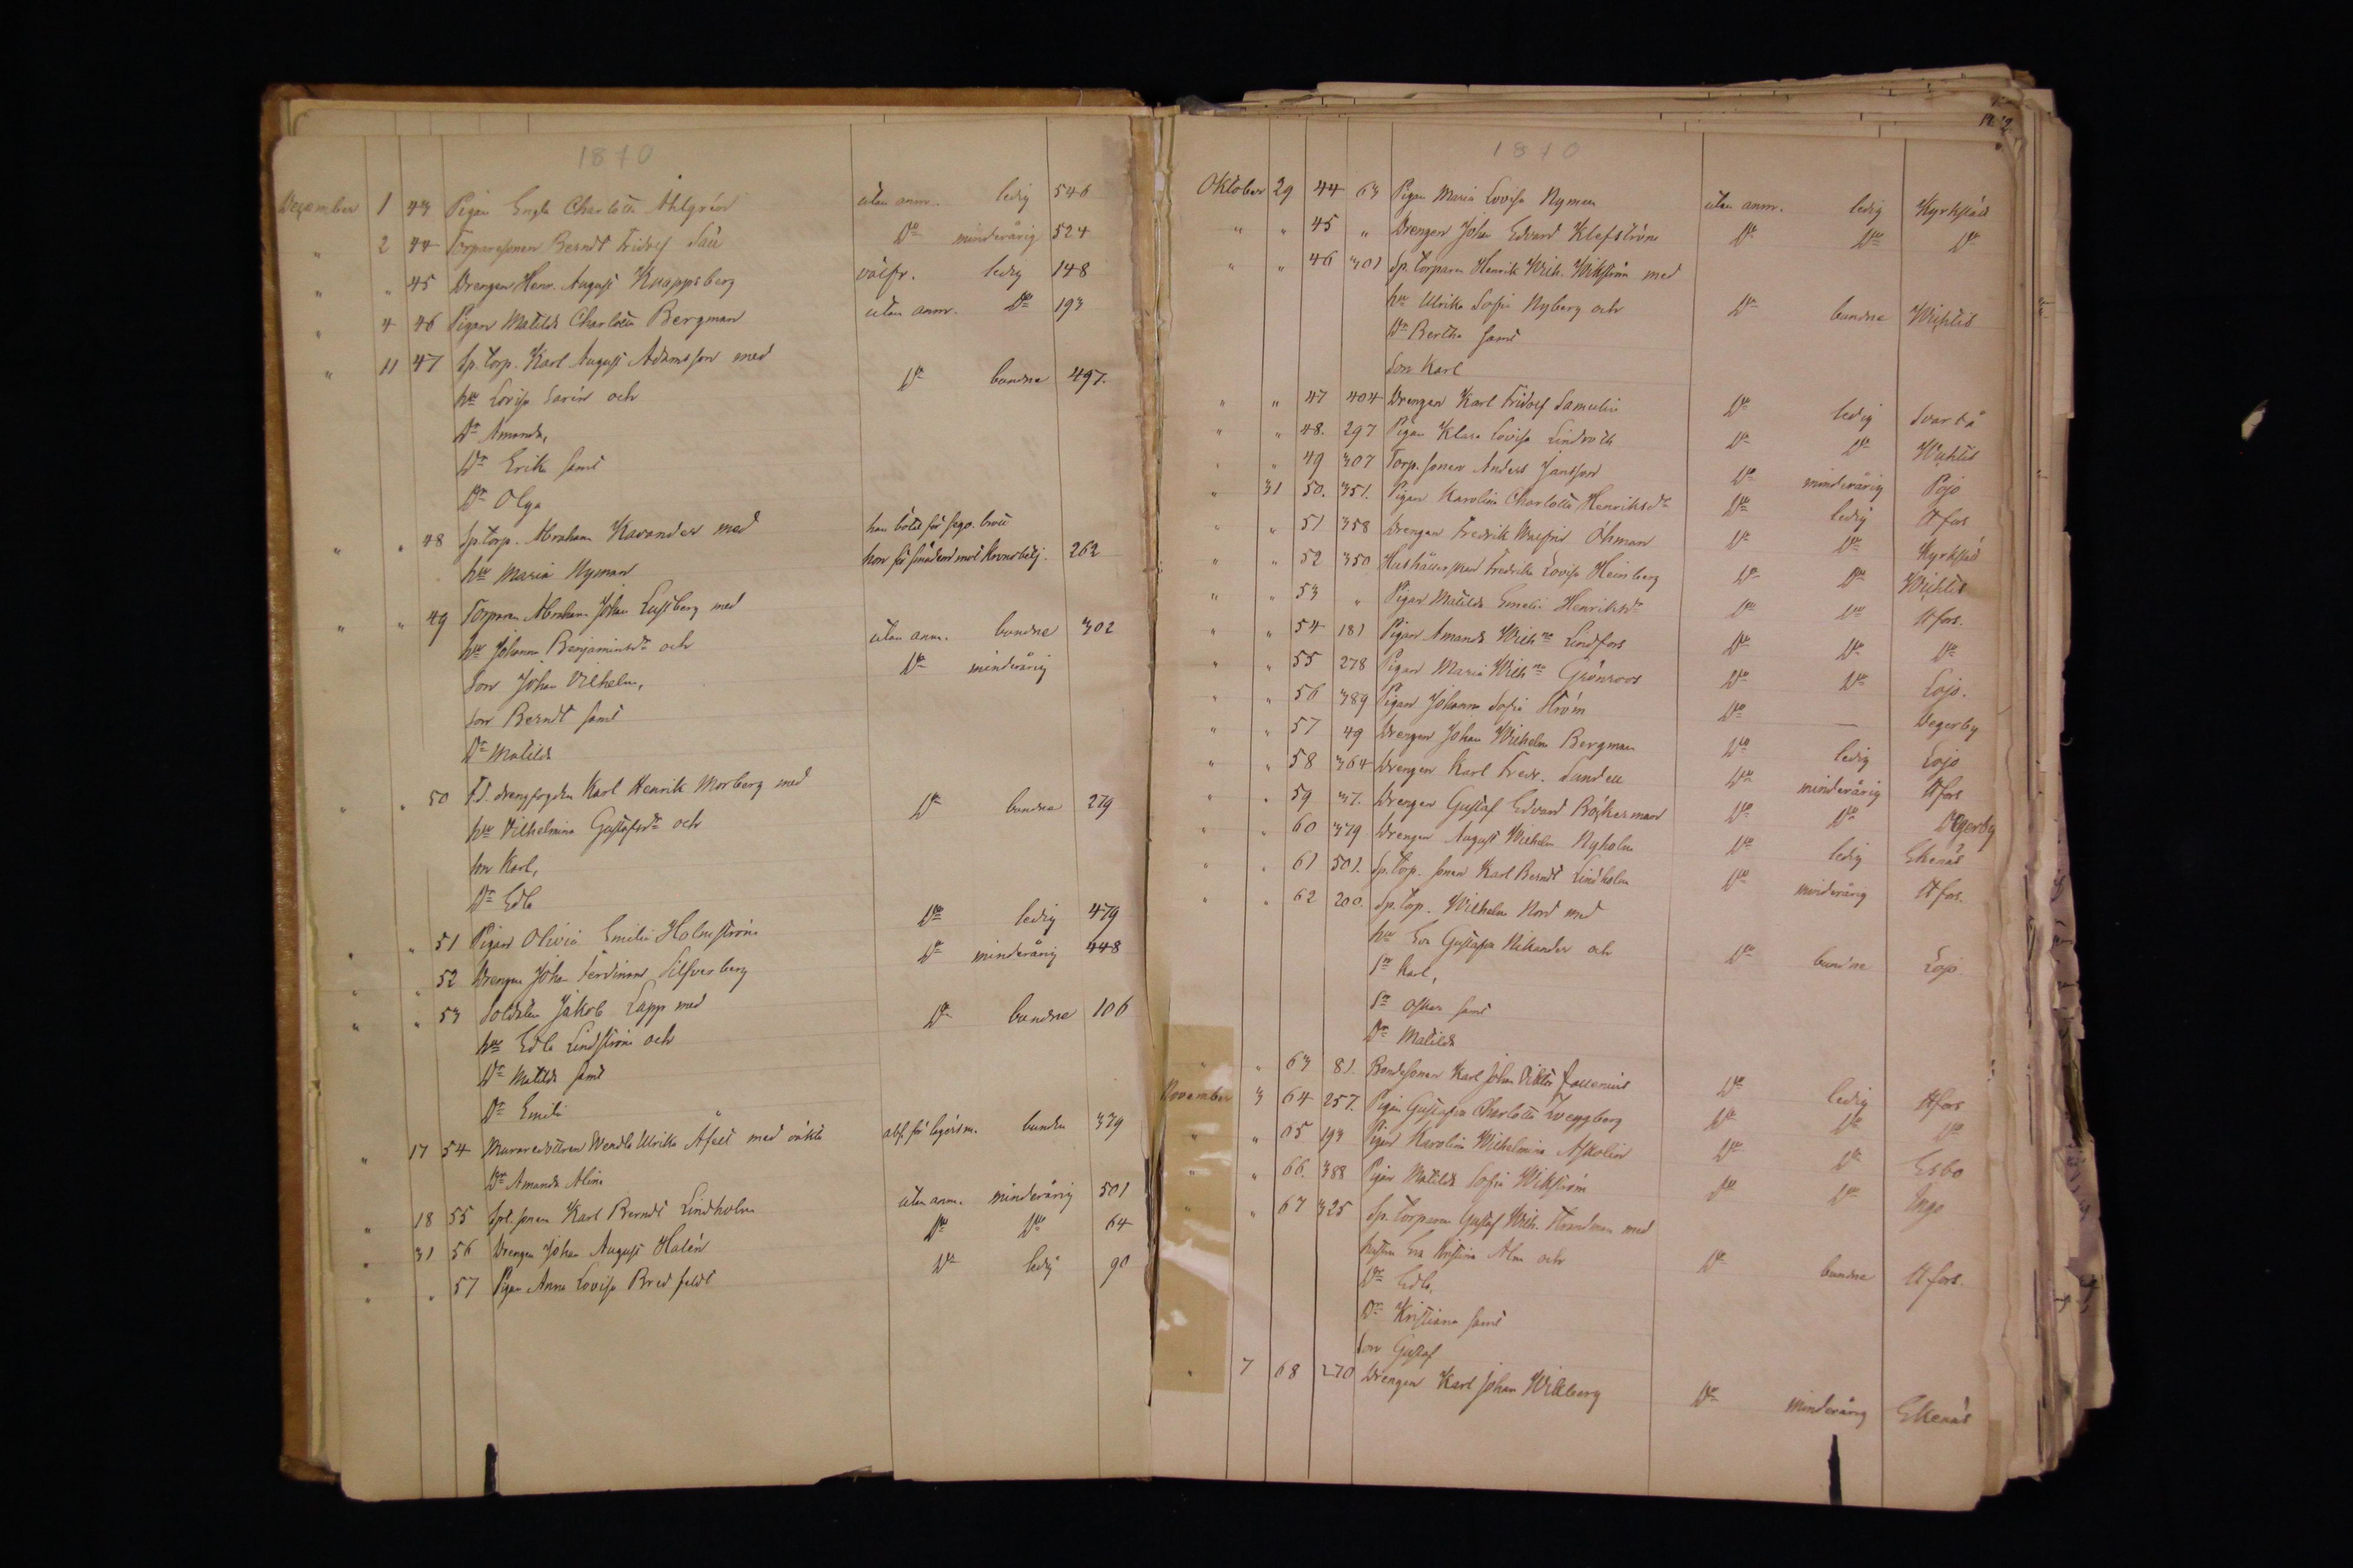 1870
December 1 43 Pigan Engla Charlotta Ahlgrén utan anm. ledig 546
" 2 44 Torparesonen Berndt Fridolf Sall Do minderårig 524
" " 45 Drengen Henr. August Knappsberg välfr. ledig 148
" 4 46 Pigan Matilda Charlotta Bergman utan anm. Do 193
" 11 47 Sp. torp. Karl August Adamsson med
hu Lovisa Sarin och Do bundna 497.
Dr Amanda,
Dr Erika samt
Dr Olga
" " 48 Sp. torp. Abraham Karander med han bött för
hu Maria Nyman hon för 262
" " 49 Torparen Abraham Johan Lustberg med
hu Johanna Benjaminsdr och utan anm. bundna 302
Son Johan Vilhelm, Do minderårig
son Berndt samt
Dr Matilda
" " 50 F.d. drengfogden Karl Henrik Morberg med
hu Vilhelmina Gustafsdr och Do bundna 279
son Karl,
Dr Edla
" " 51 Pigan Olivia Emilia Holmström Do ledig 479
" " 52 Drengen Johan Ferdinand Silfverberg Do minderårig 448
" " 53 Soldaten Jakob Lapp med
hu Edla Lindström och Do bundna 106
Dr Matilda samt
Dr Emilia
" 17 54 Muraredottren Wendla Ulrika Åfelt med oäkta abs. för lägersm. bunden 379
Dr Amanda Alina
" 18 55 Spt. sonen Karl Berndt Lindholm utan anm. minderårig 501
" 31 56 Drengen Johan August Halén Do Do 64
" " 57 Pigan Anna Lovisa Bredfeldt Do ledig 90
1870
Oktober 29 44 63 Pigan Maria Lovisa Nyman utan anm. ledig Kyrkslätt
" " 45 " Drengen Johan Edvard Klefström Do Do Do
" " 46 301 Sp. torparen Henrik Wilh. Wikström med
hu Ulrika Sofia Nyberg och Do bundna Wichtis
Dr Bertha samt
Son Karl
" " 47 404 Drengen Karl Fridolf Samulin Do ledig Svartå
" " 48. 297 Pigan Klara Lovisa Lindroth Do Do Wichtis
" " 49 307 Torp. sonen Anders Jansson Do minderårig Pojo
" 31 50. 351. Pigan Karolina Charlotta Henriksdr Do ledig Hfors
" " 51 358 Drengen Fredrik Walfrid Öhman Do Do Kyrkslätt
" " 52 350 Hushållerskan Fredrika Lovisa Heinberg Do Do Wichtis
" " 53 " Pigan Matilda Emelie Henriksdr Do Do Hfors.
" " 54 181 Pigan Amanda Wilhna Lindfors Do Do Do
" " 55 278 Pigan Maria Wilhna Grönroos Do Do Lojo.
" " 56 389 Pigan Johanna Sofia Ström Do — Degerby
" " 57 49 Drengen Johan Wilhelm Bergman Do ledig Lojo
" " 58 364 Drengen Karl Fredr. Sundell Do minderårig Hfors
" " 59 37. Drengen Gustaf Edvard Böckerman Do Do Degerby
" " 60 379 Drengen August Wilhelm Nyholm Do ledig Ekenäs
" " 61 501. Sp. torp. sonen Karl Berndt Lindholm Do minderårig Hfors.
" " 62 200. Sp. torp. Wilhelm Nord med
hu Eva Gustafva Nikander och Do bundna Lojo.
Sn Karl,
Sn Oskar samt
Dr Matilda
" " 63 81. Bondesonen Karl Johan Viktor Do ledig Hfors
November 3 64 257. Pigan Gustafva Charlotta Zweygberg Do Do Do
" " 65 193 Pigan Karolina Wilhelmina Askolin Do Do Esbo
" " 66. 388 Pigan Matilda Sofia Wikström Do Do Ingo
" " 67 325 Sp. torparen Gustaf Wilh. Strandman med
hustru Eva Kristina Alm och Do bundna Hfors.
Dr Edla,
Dr Kristiana samt
Son Gustaf
" 7 68 270 Drengen Karl Johan Willberg Do minderårig Ekenäs